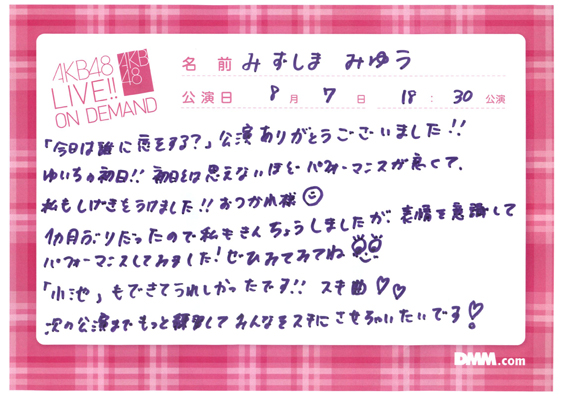 AKB48
LIVE!!
ON DEMAND
AKB
48
名 前 みずしま みゆう
公演日 8 月 7 日 18 : 30 公演
「今日は誰に恋をする?」公演ありがとうございました!!
ゆいちゃ初日!! 初日とは思えないほどパフォーマンスが良くて、
私もしげきをうけました!! おつかれ様
1カ月ぶりだったので私もきんちょうしましたが、表情を意識して
パフォーマンスしてみました!ぜひみてみてね
「小池」もできてうれしかったです!! スキ曲♡♡
次の公演までもっと練習してみんなをスキにさせちゃいたいでる♡!
DMM.com